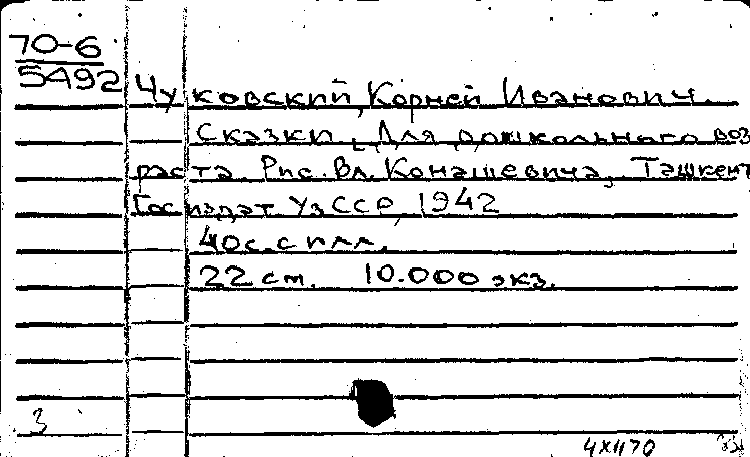 70-6
5492
Чуковский, Корней Иванович.
Сказки. [Для дошкольного воз
раста. Рис. Вл. Конашевича, Ташкент
Госиздат УзССР, 1942
40с. с илл.
22 см. 10.000 экз.
3
4х1170